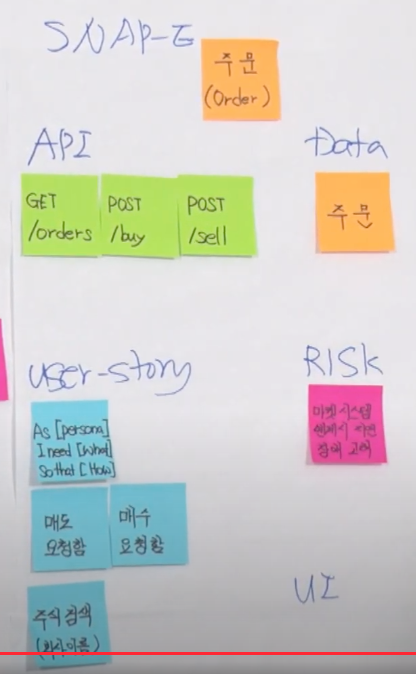 SNAP-E
주문
(Order)
API
Data
GET
/orders
POST
/buy
POST
/sell
주문
user-story
RISK
As [persona]
I need [What]
So that [How]
매도
요청함
매수
요청함
주식 검색
(회사이름)
UI